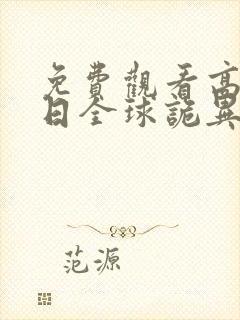 免費觀看高
日全球詭異
范源